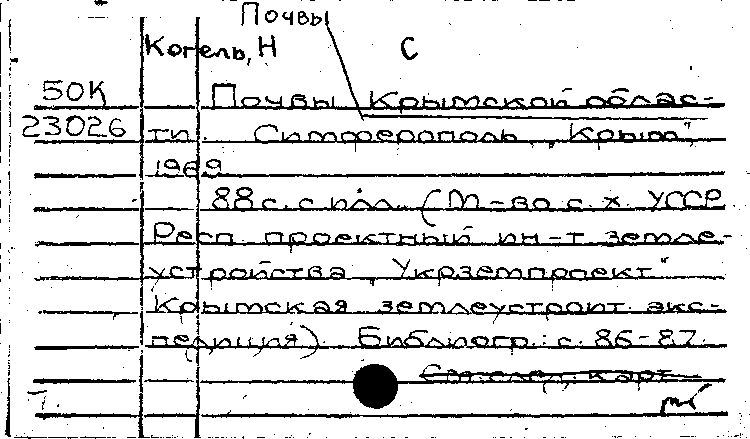 Почвы
Когель, Н С
50К Почвы Крымской облас-
23026 ти. Симферополь, „Крым",
1969
88 с. с илл. (М-во с. х. УССР
Респ. проектный ин-т земле-
устройства „Укрземпроект"
Крымская землеустроит. экс-
педиция). Библиогр.: с. 86-87.
См. след. карт.
7.